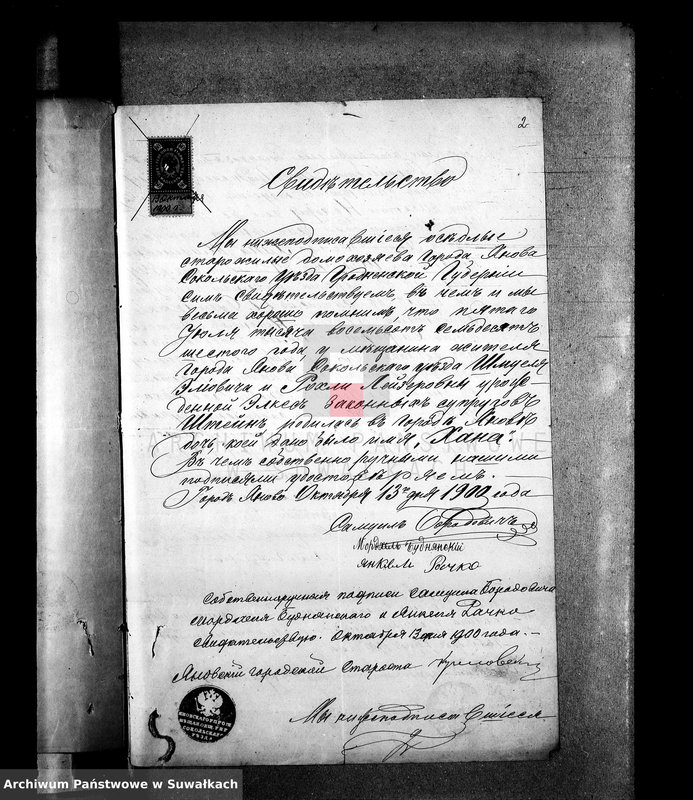 2
13 Октября
1900 г.
Свидѣтельство
Мы нижеподписавшіеся осѣдлые
старожилые домохозяева города Янова
Сокольскаго уѣзда Гродненской Губерніи
симъ свидѣтельствуемъ, въ чемъ и мы
весьма хорошо помнимъ, что пятаго
Іюля тысяча восемьсотъ семьдесятъ
шестого года, у мѣщанина жителя
города Янова, Сокольскаго уѣзда Шмуеля
и Рохли Лейзеровны урож-
денной Элкесъ законныхъ супруговъ
Штейнъ родилась въ городѣ Яновѣ
дочь, коей дано было имя „Хана".
Въ чемъ собственно ручными нашими
подписями удостовѣряемъ.
Городъ Яновъ Октября 13го дня 1900 года
Самуилъ Бородовичъ
Мордхель Буднянскій
Янкель Рачко
Собственноручныя подписи Самуила Бородовича
Мордхеля Буднянскаго и Янкеля Рачко
Свидѣтельствую. Октября 13 дня 1900 года.—
Яновскій городской Староста
ЯНОВСКАГО ГОРОД.
МѢЩАНСКАГО
СОКОЛЬСКАГО
УѢЗДА
Мы нижеподписавшіеся
ARCHIWUM PAŃSTWOWE
W SUWAŁKACH
Archiwum Państwowe w Suwałkach